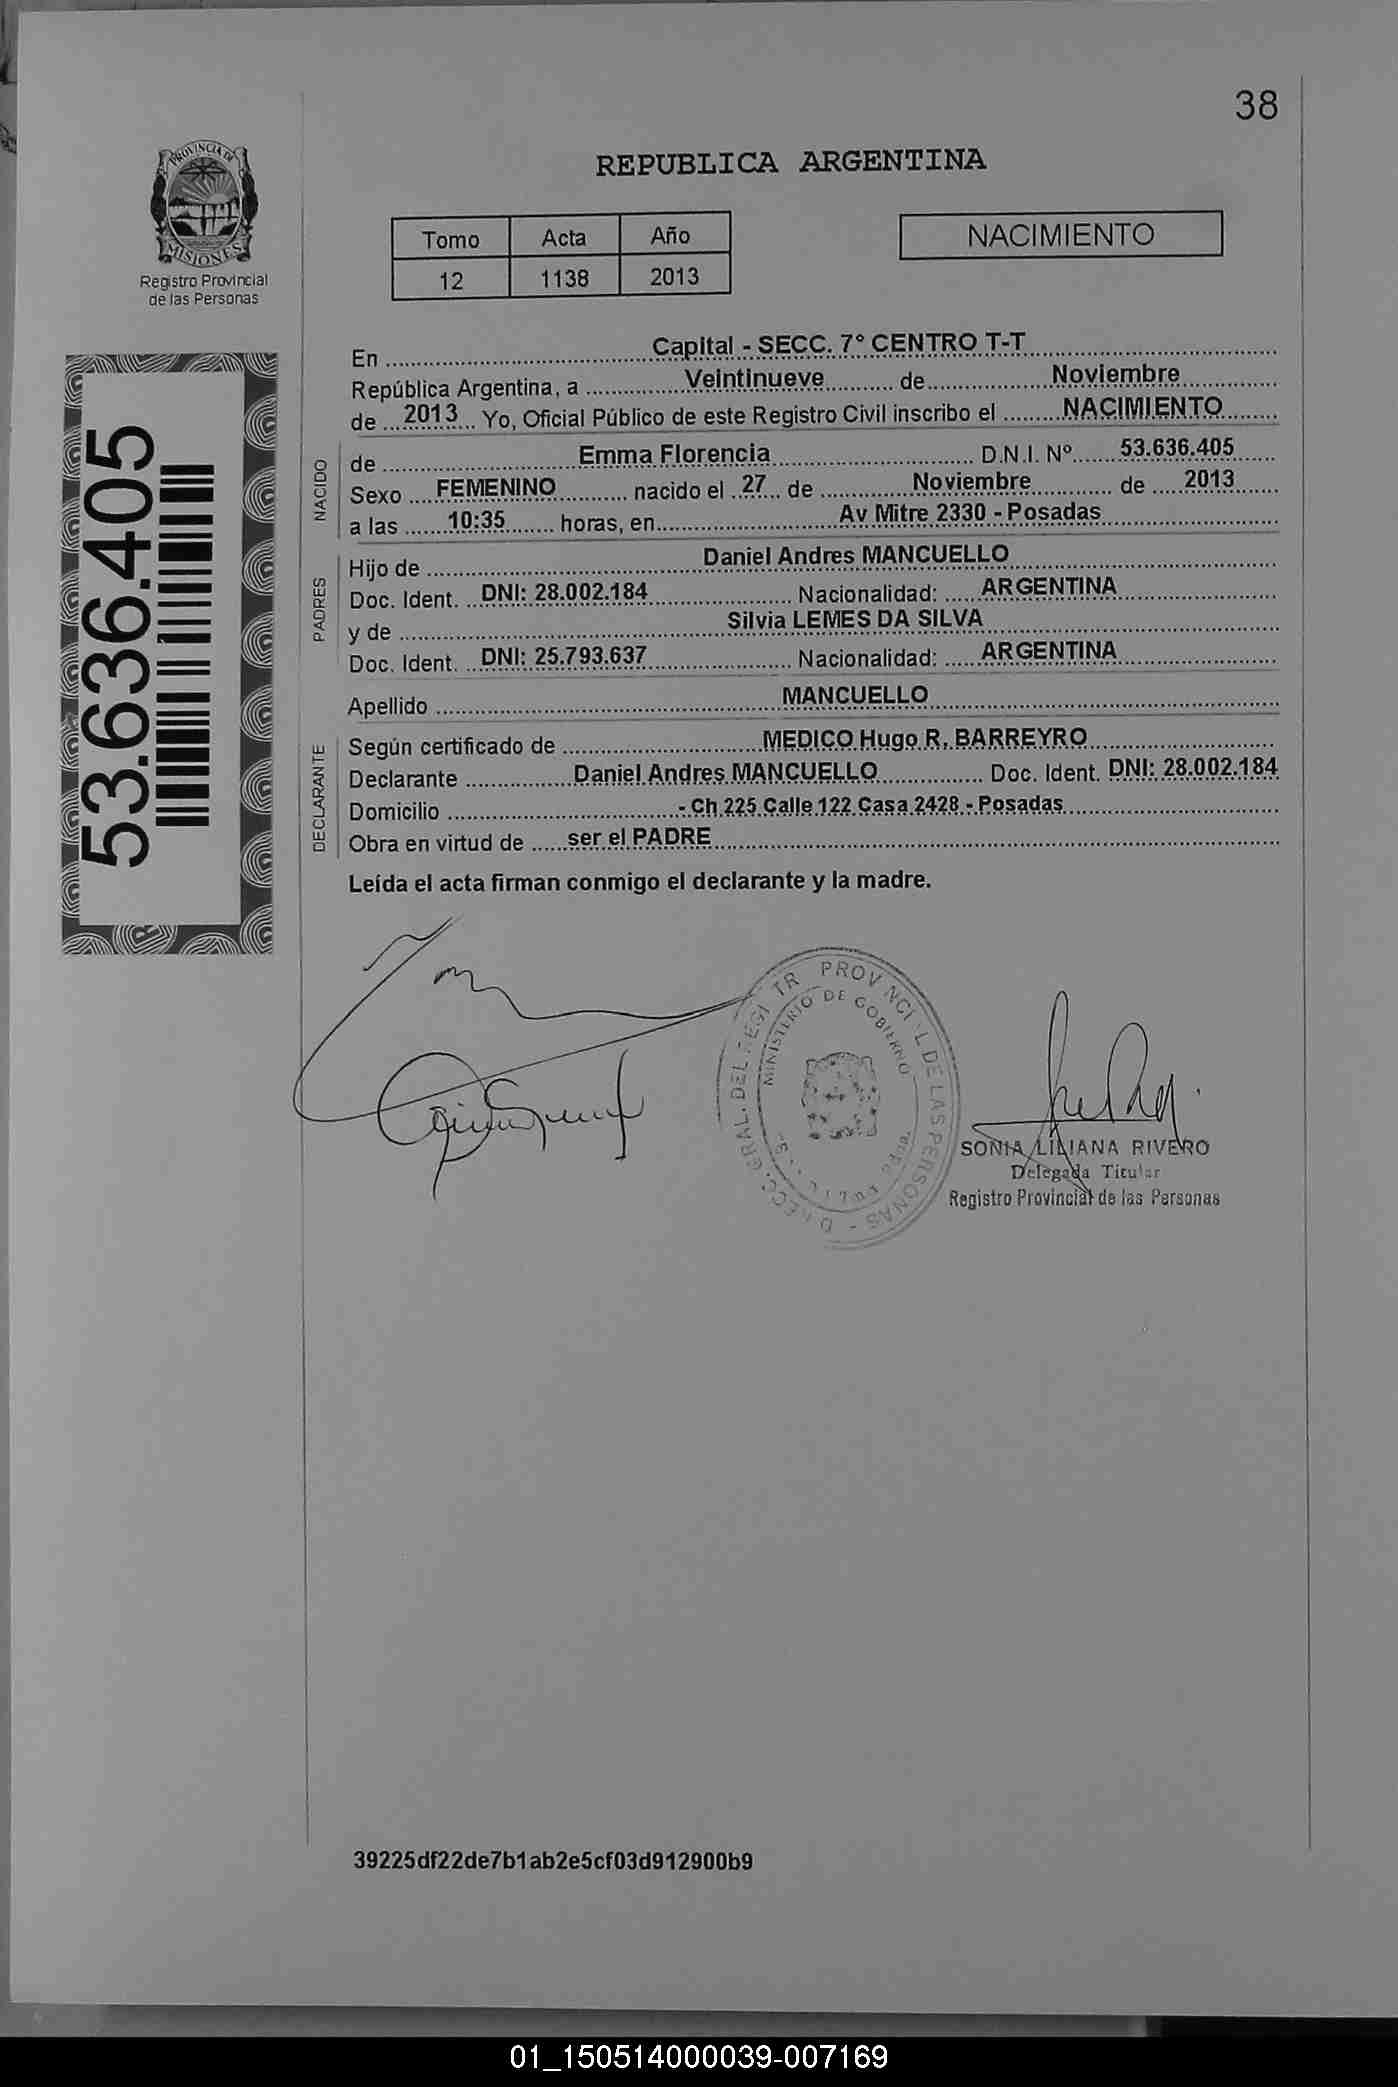 38
PROVINCIA DE
MISIONES
Registro Provincial
de las Personas
REPUBLICA ARGENTINA
Tomo Acta Año
12 1138 2013
NACIMIENTO
53.636.405
En Capital - SECC. 7° CENTRO T-T
República Argentina, a Veintinueve de Noviembre
de 2013 Yo, Oficial Público de este Registro Civil inscribo el NACIMIENTO
NACIDO
de Emma Florencia D.N.I. Nº 53.636.405
Sexo FEMENINO nacido el 27 de Noviembre de 2013
a las 10:35 horas, en Av Mitre 2330 - Posadas
PADRES
Hijo de Daniel Andres MANCUELLO
Doc. Ident. DNI: 28.002.184 Nacionalidad: ARGENTINA
y de Silvia LEMES DA SILVA
Doc. Ident. DNI: 25.793.637 Nacionalidad: ARGENTINA
Apellido MANCUELLO
DECLARANTE
Según certificado de MEDICO Hugo R. BARREYRO
Declarante Daniel Andres MANCUELLO Doc. Ident. DNI: 28.002.184
Domicilio - Ch 225 Calle 122 Casa 2428 - Posadas
Obra en virtud de ser el PADRE
Leída el acta firman conmigo el declarante y la madre.
MINISTERIO DE GOBIERNO
DE LAS PERSONAS
SONIA LILIANA RIVERO
Delegada Titular
Registro Provincial de las Personas
39225df22de7b1ab2e5cf03d912900b9
01_150514000039-007169